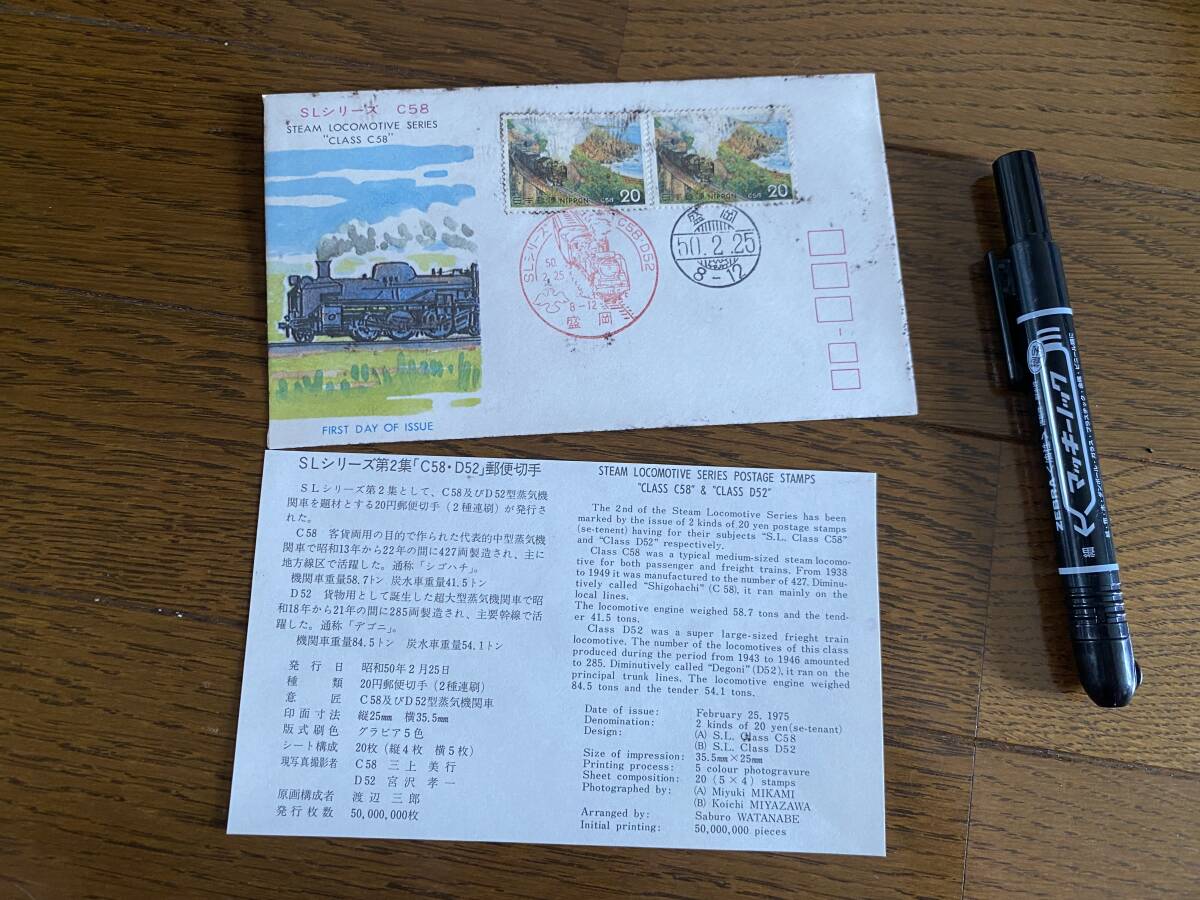 SLシリーズ C58
STEAM LOCOMOTIVE SERIES
"CLASS C58"
FIRST DAY OF ISSUE
NIPPON C58 20
NIPPON C58 20
SLシリーズ C58・D52
50.
2.25
8-12
盛岡
盛岡
50.2.25
8-12
SLシリーズ第2集「C58・D52」郵便切手
SLシリーズ第2集として、C58及びD52型蒸気機
関車を題材とする20円郵便切手(2種連刷)が発行さ
れた。
C58 客貨両用の目的で作られた代表的中型蒸気機
関車で昭和13年から22年の間に427両製造され、主に
地方線区で活躍した。通称「シゴハチ」。
機関車重量58.7トン 炭水車重量41.5トン
D52 貨物用として誕生した超大型蒸気機関車で昭
和18年から21年の間に285両製造され、主要幹線で活
躍した。通称「デゴニ」。
機関車重量84.5トン 炭水車重量54.1トン
発行日 昭和50年2月25日
種類 20円郵便切手(2種連刷)
意匠 C58及びD52型蒸気機関車
印面寸法 縦25mm 横35.5mm
版式刷色 グラビア5色
シート構成 20枚(縦4枚 横5枚)
現写真撮影者 C58 三上美行
D52 宮沢孝一
原画構成者 渡辺三郎
発行枚数 50,000,000枚
STEAM LOCOMOTIVE SERIES POSTAGE STAMPS
"CLASS C58" & "CLASS D52"
The 2nd of the Steam Locomotive Series has been
marked by the issue of 2 kinds of 20 yen postage stamps
(se-tenent) having for their subjects "S.L. Class C58"
and "Class D52" respectively.
Class C58 was a typical medium-sized steam locomo-
tive for both passenger and freight trains. From 1938
to 1949 it was manufactured to the number of 427. Diminu-
tively called "Shigohachi" (C 58), it ran mainly on the
local lines.
The locomotive engine weighed 58.7 tons and the tend-
er 41.5 tons.
Class D52 was a super large-sized frieght train
locomotive. The number of the locomotives of this class
produced during the period from 1943 to 1946 amounted
to 285. Diminutively called "Degoni" (D52), it ran on the
principal trunk lines. The locomotive engine weighed
84.5 tons and the tender 54.1 tons.
Date of issue: February 25. 1975
Denomination: 2 kinds of 20 yen(se-tenant)
Design: (A) S.L. Class C58
(B) S.L. Class D52
Size of impression: 35.5mm×25mm
Printing process: 5 colour photogravure
Sheet composition: 20 (5×4) stamps
Photographed by: (A) Miyuki MIKAMI
(B) Koichi MIYAZAWA
Arranged by: Saburo WATANABE
Initial printing: 50,000,000 pieces
ZEBRA
マッキーノック
細